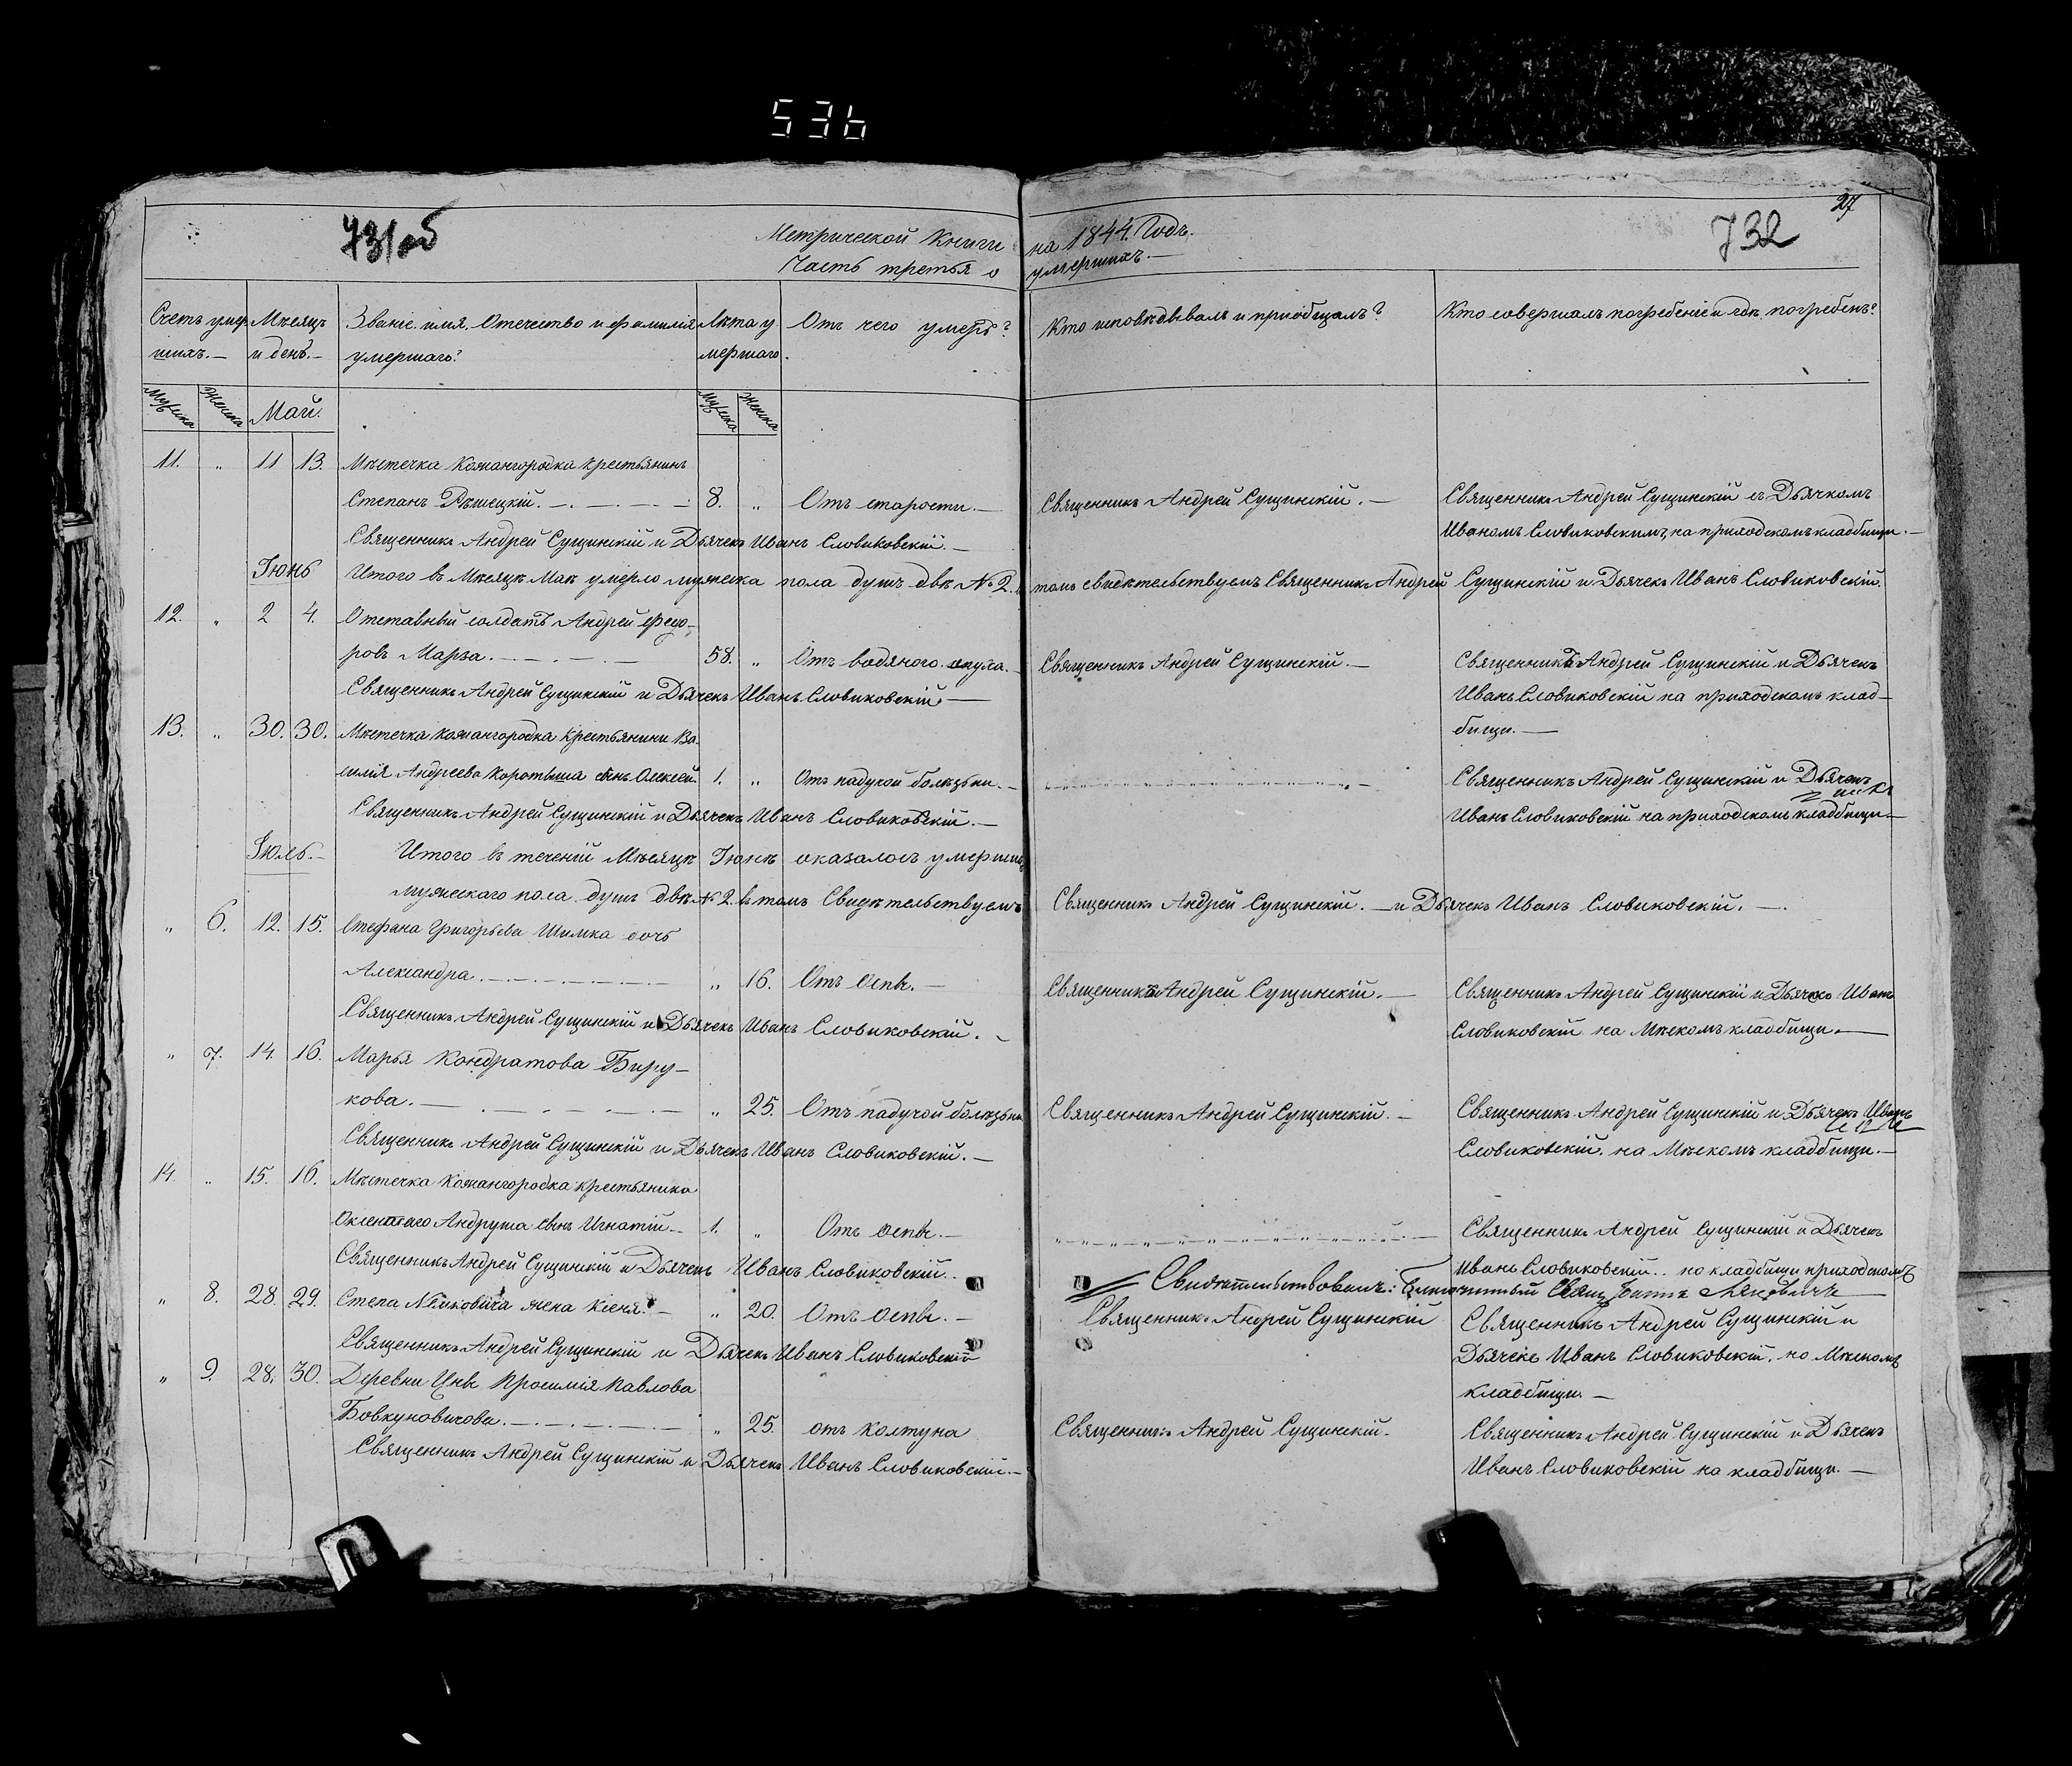 536
731об
Метрической Книги на 1844. Годъ.
27
732
Часть третья о умершихъ.—
Счетъ умер
шихъ.—
Мѣсяцъ
и день.—
Званіе. имя. Отечество и фамилія
умершаго?
Лѣта у
мершаго.
Отъ чего умеръ?
Кто исповѣдывалъ и пріобщалъ?
Кто совершалъ погребеніе и гдѣ погребенъ?
Мужска Женска Май. Мужска Женска
11. „ 11 13. Мѣстечка Кожангородка крестьянинъ
Степанъ Рѣшецкій. 8. „ Отъ старости.— Священникъ Андрей Сущинскій.— Священникъ Андрей Сущинскій съ Дьячкомъ
Священникъ Андрей Сущинскій и Дьячекъ Иванъ Словиковскій.— Иваномъ Словиковскимъ, на приходскомъ кладбищи.—
Іюнь Итого въ Мѣсяцѣ Маѣ умерло мужеска пола душъ двѣ № 2. томъ свидѣтельствуемъ Священникъ Андрей Сущинскій и Дьячекъ Иванъ Словиковскій.
12. „ 2 4. Отставный солдатъ Андрей Федо-
ровъ Марза. 58. „ Отъ водяного опуха.— Священникъ Андрей Сущинскій.— Священникъ Андрей Сущинскій и Дьячекъ
Священникъ Андрей Сущинскій и Дьячекъ Иванъ Словиковскій— Иванъ Словиковскій на приходскомъ клад-
13. „ 30. 30. Мѣстечка Кожангородка крестьянини Ва- бищи.—
силія Андреева Коротыша сынъ Олексей. 1. „ Отъ падучой болѣзьни.— Священникъ Андрей Сущинскій и Дьячекъ
Священникъ Андрей Сущинскій и Дьячекъ Иванъ Словиковскій.— Иванъ Словиковскій на приходскомъ кладбищи—
Іюль.— Итого въ теченій Мѣсяцѣ Іюнѣ оказалось умерших
мужескаго пола душъ двѣ № 2. въ томъ Свидѣтельствуемъ Священникъ Андрей Сущинскій.—и Дьячекъ Иванъ Словиковскій.—
„ 6. 12. 15. Стефана Григорьева Шимка дочь
Александра. „ 16. Отъ Оспы.— Священникъ Андрей Сущинскій.— Священникъ Андрей Сущинскій и Дьячекъ Иванъ
Священникъ Андрей Сущинскій и Дьячекъ Иванъ Словиковскій. Словиковскій на Мѣскомъ кладбищи.—
„ 7. 14. 16. Марья Кондратова Биру-
кова.— „ 25. Отъ падучой болѣзьни Священникъ Андрей Сущинскій.— Священникъ Андрей Сущинскій и Дьячекъ Иванъ
Священникъ Андрей Сущинскій и Дьячекъ Иванъ Словиковскій.— Словиковскій. на Мѣскомъ кладбищи.—
14. „ 15. 16. Мѣстечка Кожангородка крестьянина
Андруша сынъ Игнатій. 1. „ Отъ оспы.— Священникъ Андрей Сущинскій и Дьячекъ
Священникъ Андрей Сущинскій и Дьячекъ Иванъ Словиковскій.. Иванъ Словиковскій.. на кладбищи приходскомъ
Свидѣтельствовалъ: Благочинный Свящ Іоаннъ
„ 8. 28. 29. Степа жена Ксеня.— „ 20. Отъ Оспы.— Священникъ Андрей Сущинскій Священникъ Андрей Сущинскій и
Священникъ Андрей Сущинскій и Дьячекъ Иванъ Словиковскій Дьячекъ Иванъ Словиковскій. на Мѣскомъ
„ 9. 28. 30. Деревни Цны Просимія Павлова кладбищи.—
Бовкуновичова. „ 25. отъ колтуна Священникъ Андрей Сущинскій. Священникъ Андрей Сущинскій и Дьячекъ
Священникъ Андрей Сущинскій и Дьячекъ Иванъ Словиковскій.— Иванъ Словиковскій на кладбищи.—